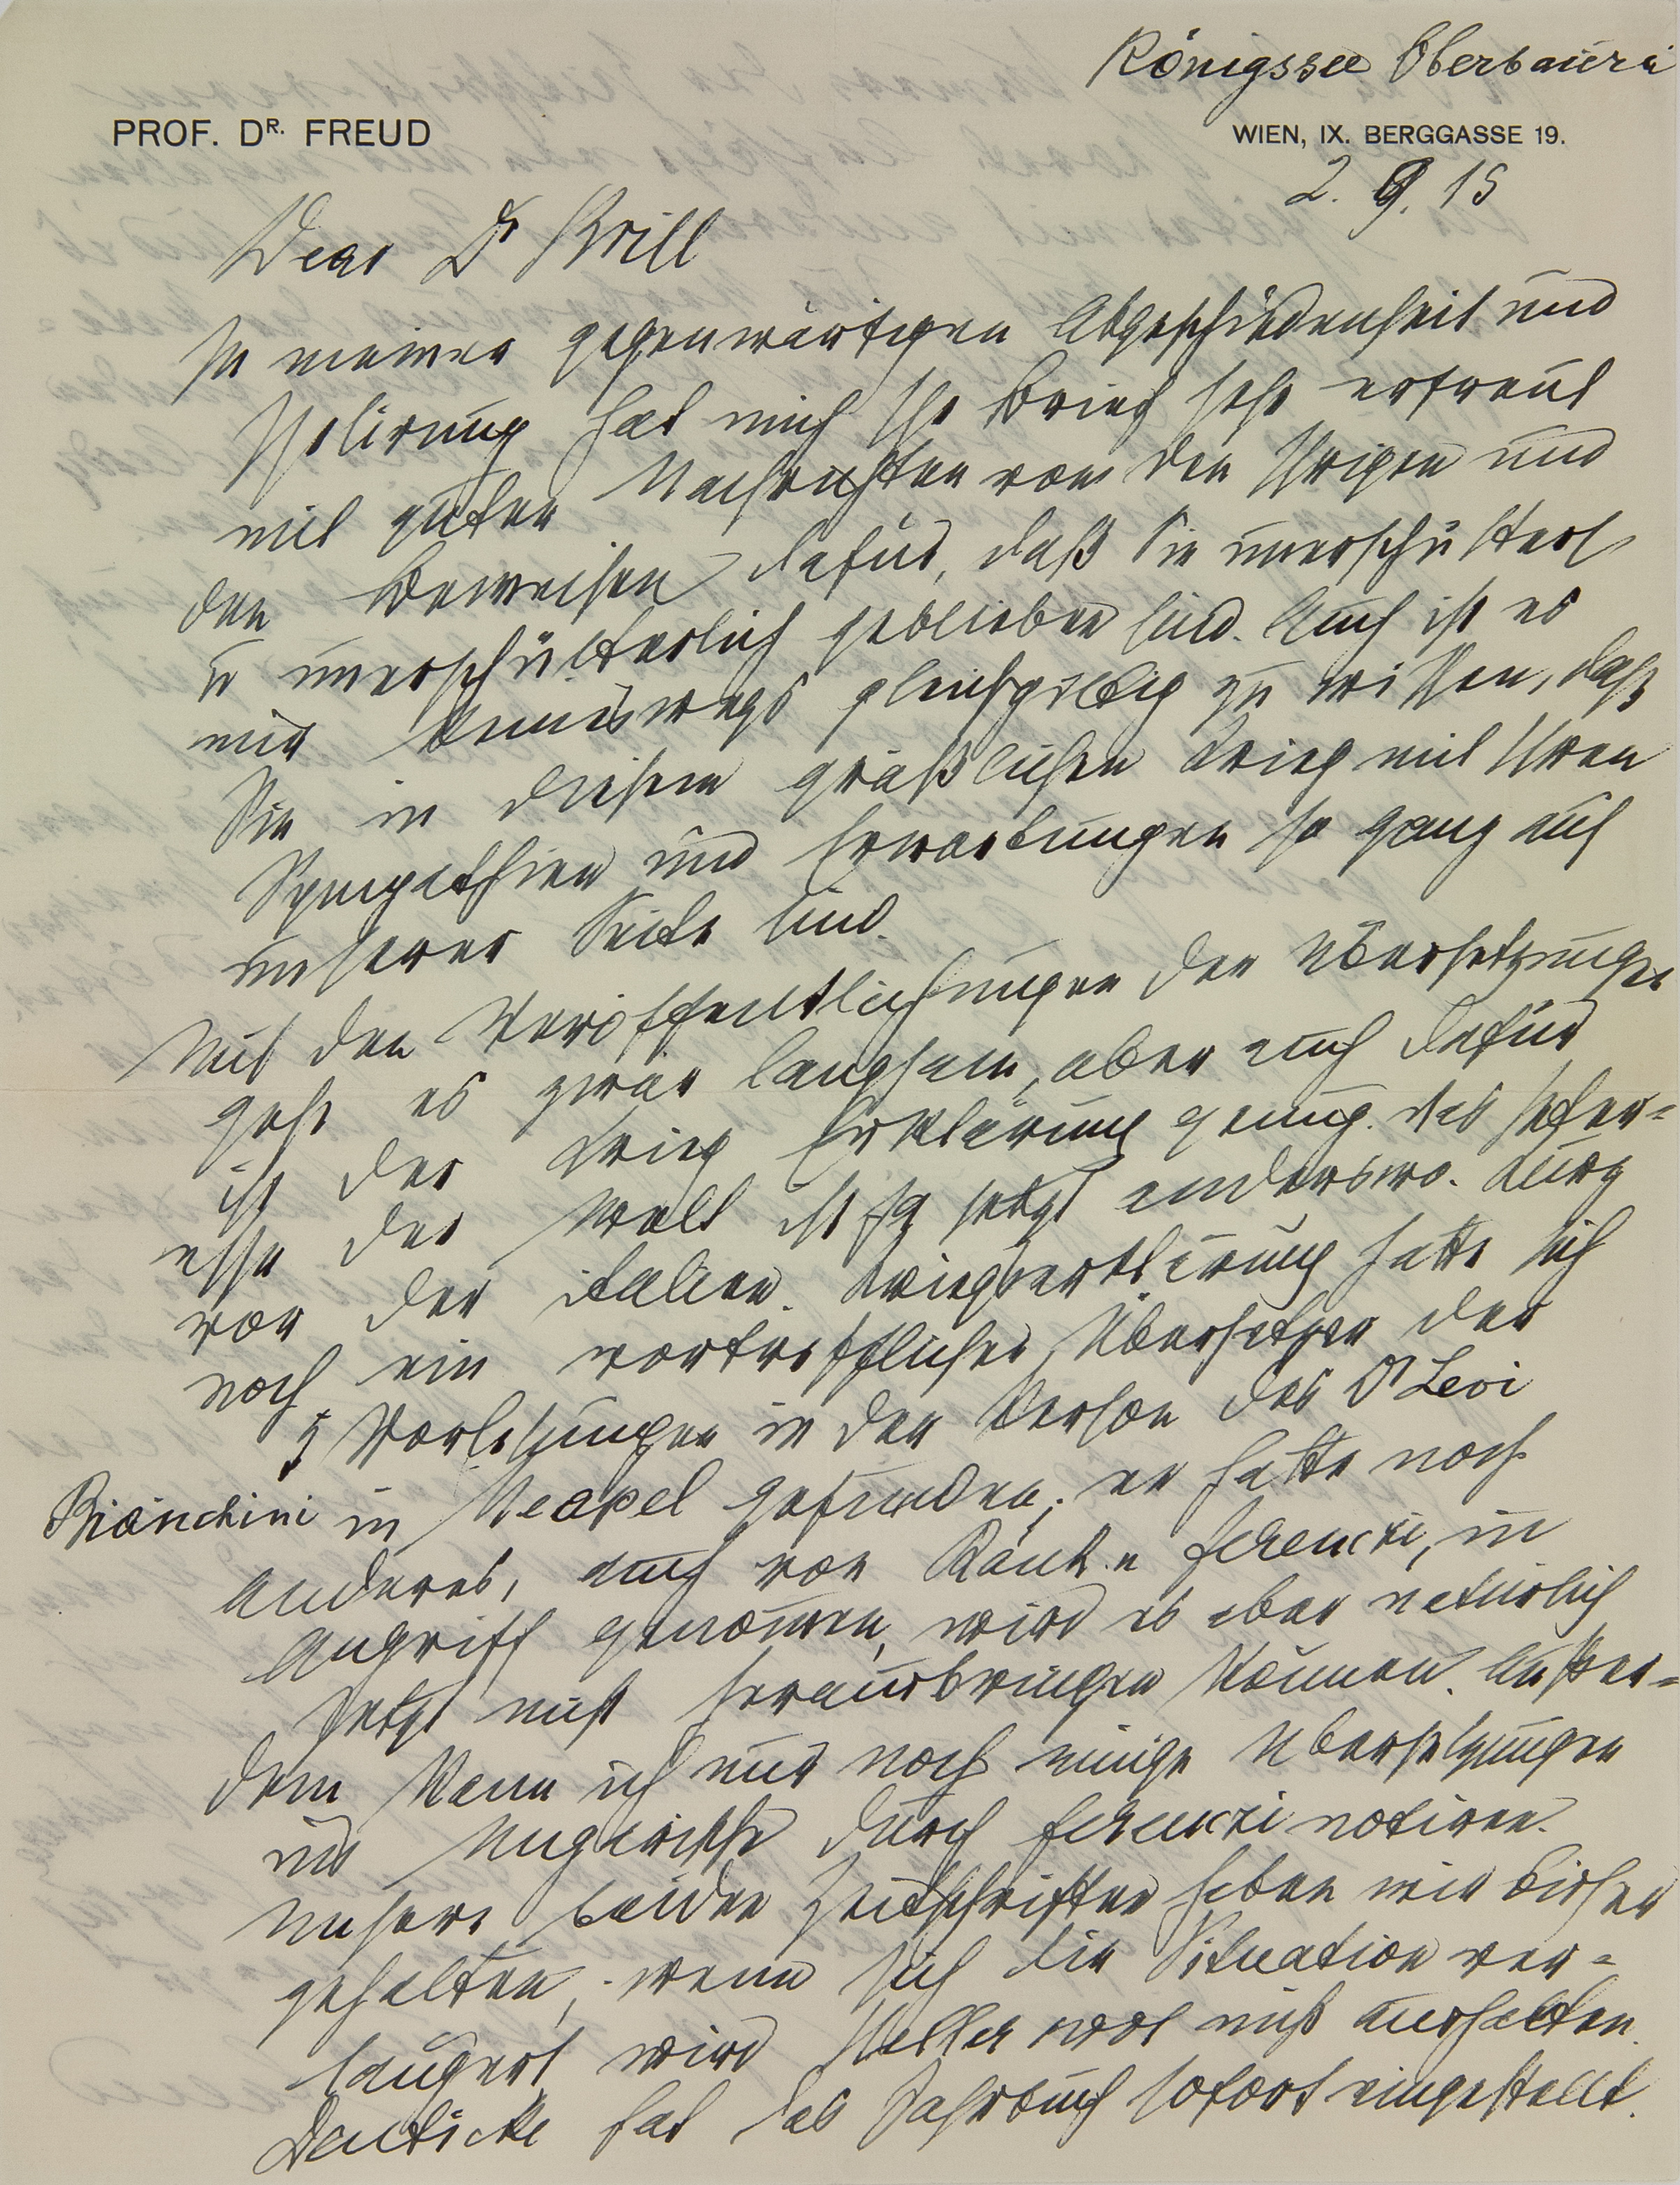 Königssee Oberbaiern
PROF. DR. FREUD
WIEN, IX. BERGGASSE 19.
2. 9. 15
Dear Dr Brill
In meiner gegenwärtigen Abgeschiedenheit und
Isolirung hat mich Ihr Brief sehr erfreut
mit guten Nachrichten von den Ihrigen und
den Beweisen dafür, daß Sie unerschüttert
u unerschütterlich geblieben sind. Auch ist es
mir keineswegs gleichgiltig zu wissen, daß
Sie in diesem gräßlichen Krieg mit Ihren
Sympathien und Erwartungen so ganz auf
unserer Seite sind.
Mit den Veröffentlichungen der Übersetzungen
geht es zwar langsam, aber auch dafür
ist der Krieg Erklärung genug. Das Inter-
esse der Welt ist ja jetzt anderswo. Kurz
vor der italien. Kriegserklärung hatte sich
noch ein vortrefflicher Übersetzer der
5 Vorlesungen in der Person des Dr Levi
Bianchini in Neapel gefunden; er hatte noch
anderes, auch von Rank u Ferenczi, in
Angriff genommen, wird es aber natürlich
jetzt nicht herausbringen können. Außer-
dem kann ich nur noch einige Übersetzungen
ins Ungarische durch Ferenczi notiren.
Unsere beiden Zeitschriften haben wir bisher
gehalten; wenn sich die Situation ver-
längert wird Heller wol nicht aushalten.
Deuticke hat das Jahrbuch sofort eingestellt.